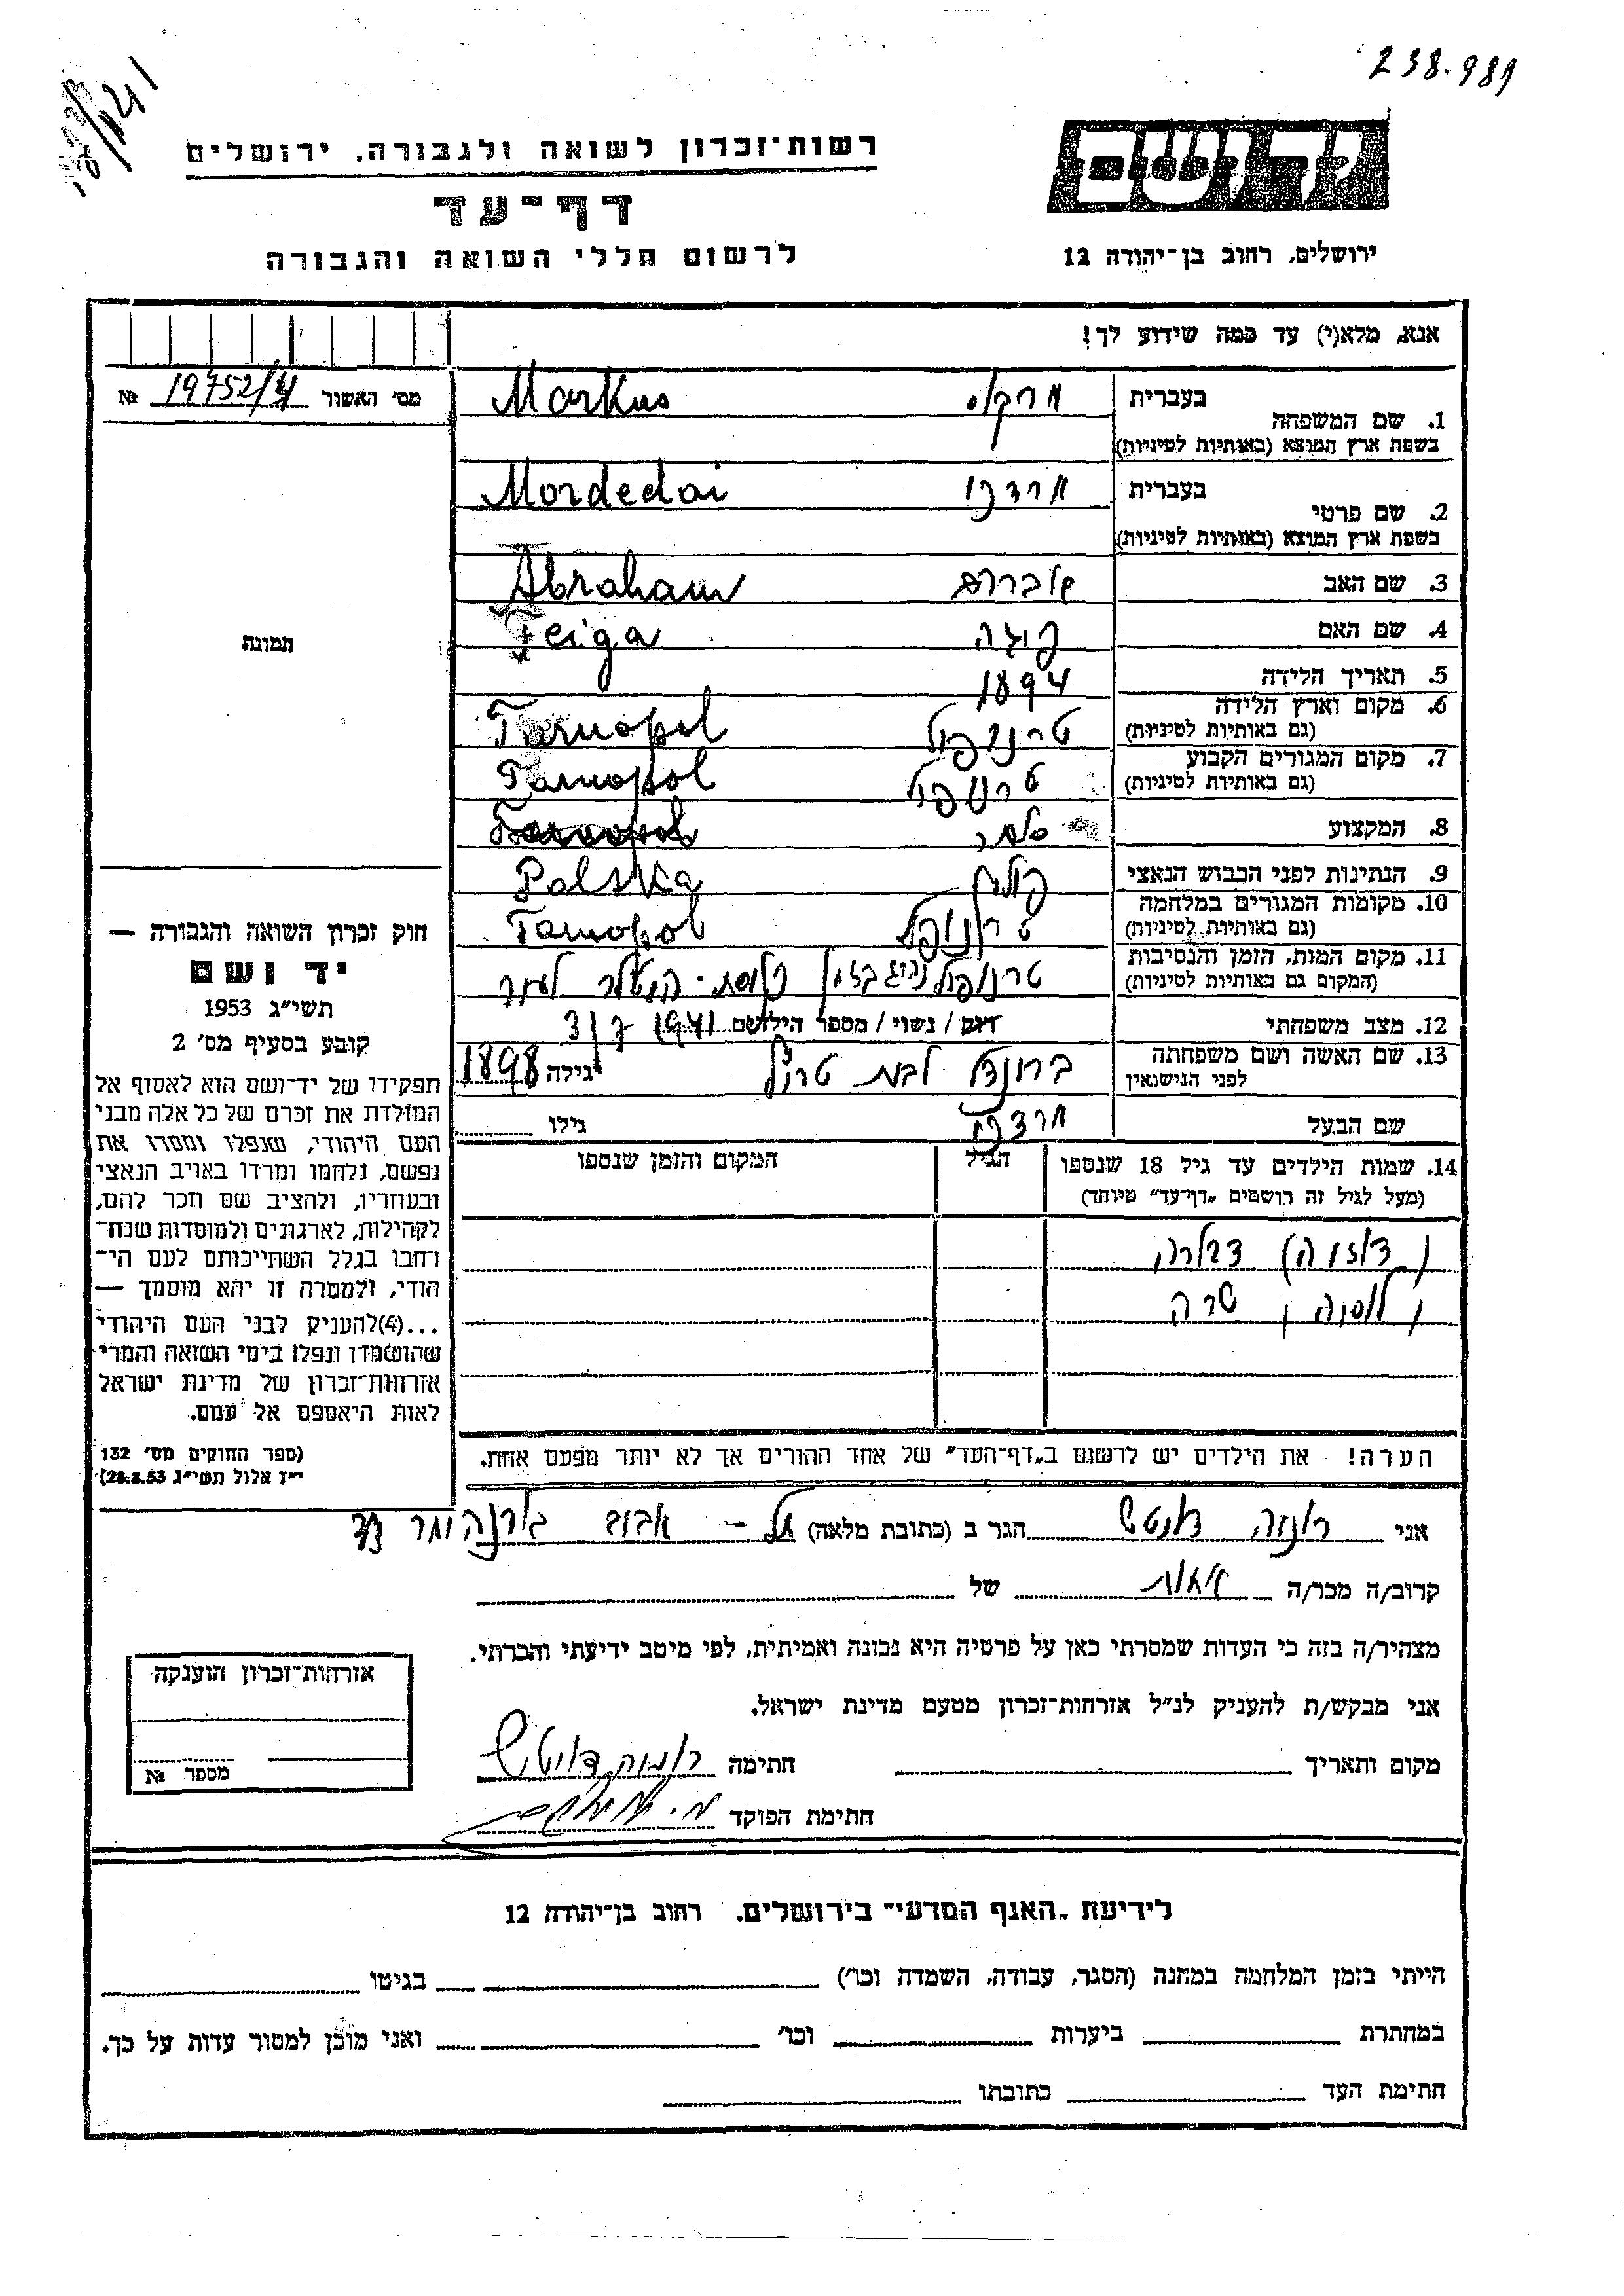 238.989
רשות־זכרון לשואה ולגבורה, ירושלים
יד ושם
דף־עד
לרשום חללי השואה והגבורה
ירושלים, רחוב בן־יהודה 12
אנא, מלא(י) עד כמה שידוע לך!
מס׳ האשור 19752/4 №
1. שם המשפחה
בעברית מרקוס Markus
בשפת ארץ המוצא (באותיות לטיניות)
2. שם פרטי
בעברית מרדכי Mordedai
בשפת ארץ המוצא (באותיות לטיניות)
3. שם האב אברהם Abraham
4. שם האם פיגה Feiga
5. תאריך הלידה 1894
6. מקום וארץ הלידה טרנופול Tarnopol
(גם באותיות לטיניות)
7. מקום המגורים הקבוע טרנופול Tarnopol
(גם באותיות לטיניות)
8. המקצוע סוחר
9. הנתינות לפני הכבוש הנאצי פולין Polska
10. מקומות המגורים במלחמה טרנופול Tarnopol
(גם באותיות לטיניות)
11. מקום המות, הזמן והנסיבות טרנופול
(המקום גם באותיות לטיניות)
12. מצב משפחתי רווק / נשוי / מספר הילדים 3/7 1941
13. שם האשה ושם משפחתה לפני הנישואין ברונדל לבית גילה 1898
שם הבעל מרדכי גילו
14. שמות הילדים עד גיל 18 שנספו
(מעל לגיל זה רושמים „דף־עד״ מיוחד)
הגיל
המקום והזמן שנספו
דבורה
שרה
הערה! את הילדים יש לרשום ב„דף־העד״ של אחד ההורים אך לא יותר מפעם אחת.
תמונה
חוק זכרון השואה והגבורה —
יד ושם
תשי״ג 1953
קובע בסעיף מס׳ 2
תפקידו של יד־ושם הוא לאסוף אל
המולדת את זכרם של כל אלה מבני
העם היהודי, שנפלו ומסרו את
נפשם, נלחמו ומרדו באויב הנאצי
ובעוזריו, ולהציב שם וזכר להם,
לקהילות, לארגונים ולמוסדות שנח־
רחבו בגלל השתייכותם לעם הי־
הודי, ולמטרה זו יהא מוסמך —
...(4)להעניק לבני העם היהודי
שהושמדו ונפלו בימי השואה והמרי
אזרחות־זכרון של מדינת ישראל
לאות היאספם אל עמם.
(ספר החוקים מס׳ 132
י״ז אלול תשי״ג 28.8.53)
אני הגר ב (כתובת מלאה) תל־אביב
קרוב/ה מכר/ה אחות של
מצהיר/ה בזה כי העדות שמסרתי כאן על פרטיה היא נכונה ואמיתית, לפי מיטב ידיעתי והכרתי.
אני מבקש/ת להעניק לנ״ל אזרחות־זכרון מטעם מדינת ישראל.
מקום ותאריך חתימה
חתימת הפוקד
אזרחות־זכרון הוענקה
מספר №
לידיעת „האגף המדעי״ בירושלים. רחוב בן־יהודה 12
הייתי בזמן המלחמה במחנה (הסגר, עבודה, השמדה וכו׳) בגיטו
במחתרת ביערות וכו׳ ואני מוכן למסור עדות על כך.
חתימת העד כתובתו